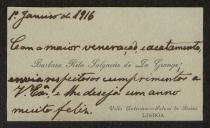 1º Janeiro de 1916
Com a maior veneração e acatamento,
Barbara Rita Salgueiro de La Grange
envia respeitosos cumprimentos a
V. Exª. e lhe deseja um anno
muito feliz.
LISBOA